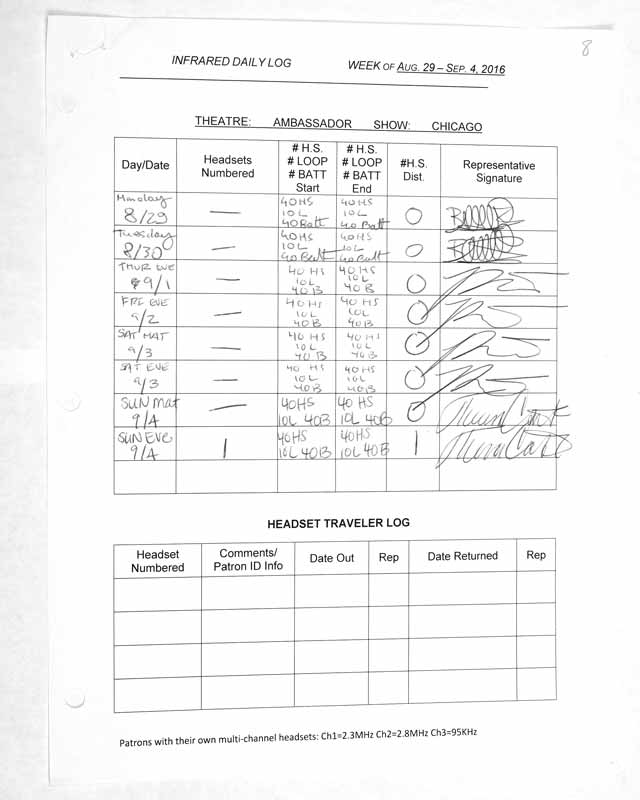 8
INFRARED DAILY LOG WEEK OF AUG. 29 – SEP. 4, 2016
THEATRE: AMBASSADOR SHOW: CHICAGO
Day/Date
Headsets
Numbered
# H.S.
# LOOP
# BATT
Start
# H.S.
# LOOP
# BATT
End
#H.S.
Dist.
Representative
Signature
Monday
8/29
—
40 HS
10 L
40 Batt
40 HS
10 L
40 Batt
0
Tuesday
8/30
—
40 HS
10 L
40 Batt
40 HS
10 L
40 Batt
0
THUR EVE
9/1
—
40 HS
10 L
40 B
40 HS
10 L
40 B
0
FRI EVE
9/2
—
40 HS
10 L
40 B
40 HS
10 L
40 B
0
SAT MAT
9/3
—
40 HS
10 L
40 B
40 HS
10 L
40 B
0
SAT EVE
9/3
—
40 HS
10 L
40 B
40 HS
10 L
40 B
0
SUN Mat
9/4
—
40 HS
10L 40B
40 HS
10L 40B
0
SUN EVE
9/4
1
40 HS
10L 40B
40 HS
10L 40B
1
HEADSET TRAVELER LOG
Headset
Numbered
Comments/
Patron ID Info
Date Out
Rep
Date Returned
Rep
Patrons with their own multi-channel headsets: Ch1=2.3MHz Ch2=2.8MHz Ch3=95KHz